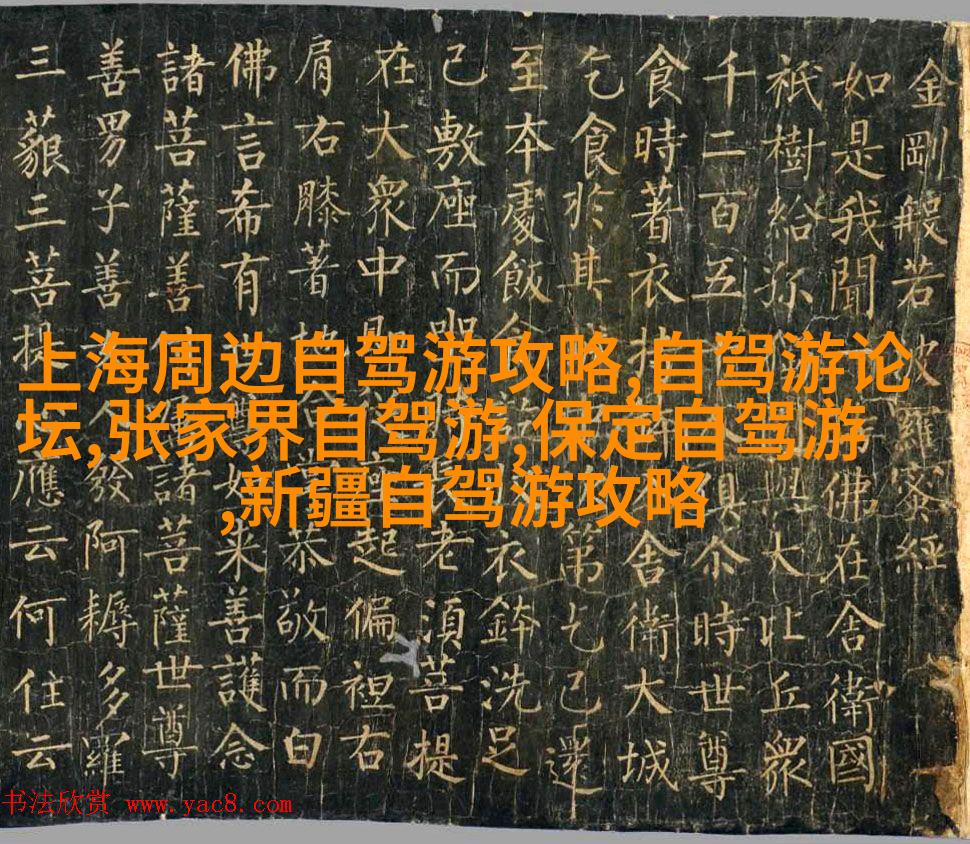 金剛般若波羅蜜經
如是我聞佛在舍衛國
祇樹給孤與大比丘衆
千二百五人俱尒時世尊
食時著衣持舍衛大城
乞食於其第乞已還
至本處飯食衣鉢洗足
已敷座而坐長老須菩提
在大衆中即起偏袒右
肩右膝著地恭敬而白
佛言希有如來善護念
諸菩薩善付諸菩薩世尊
善男子善人發阿耨多羅
三藐三菩提應云何住云
上海周边自驾游攻略,自驾游论
坛,张家界自驾游,保定自驾游
,新疆自驾游攻略
书法欣赏 www.yac8.com